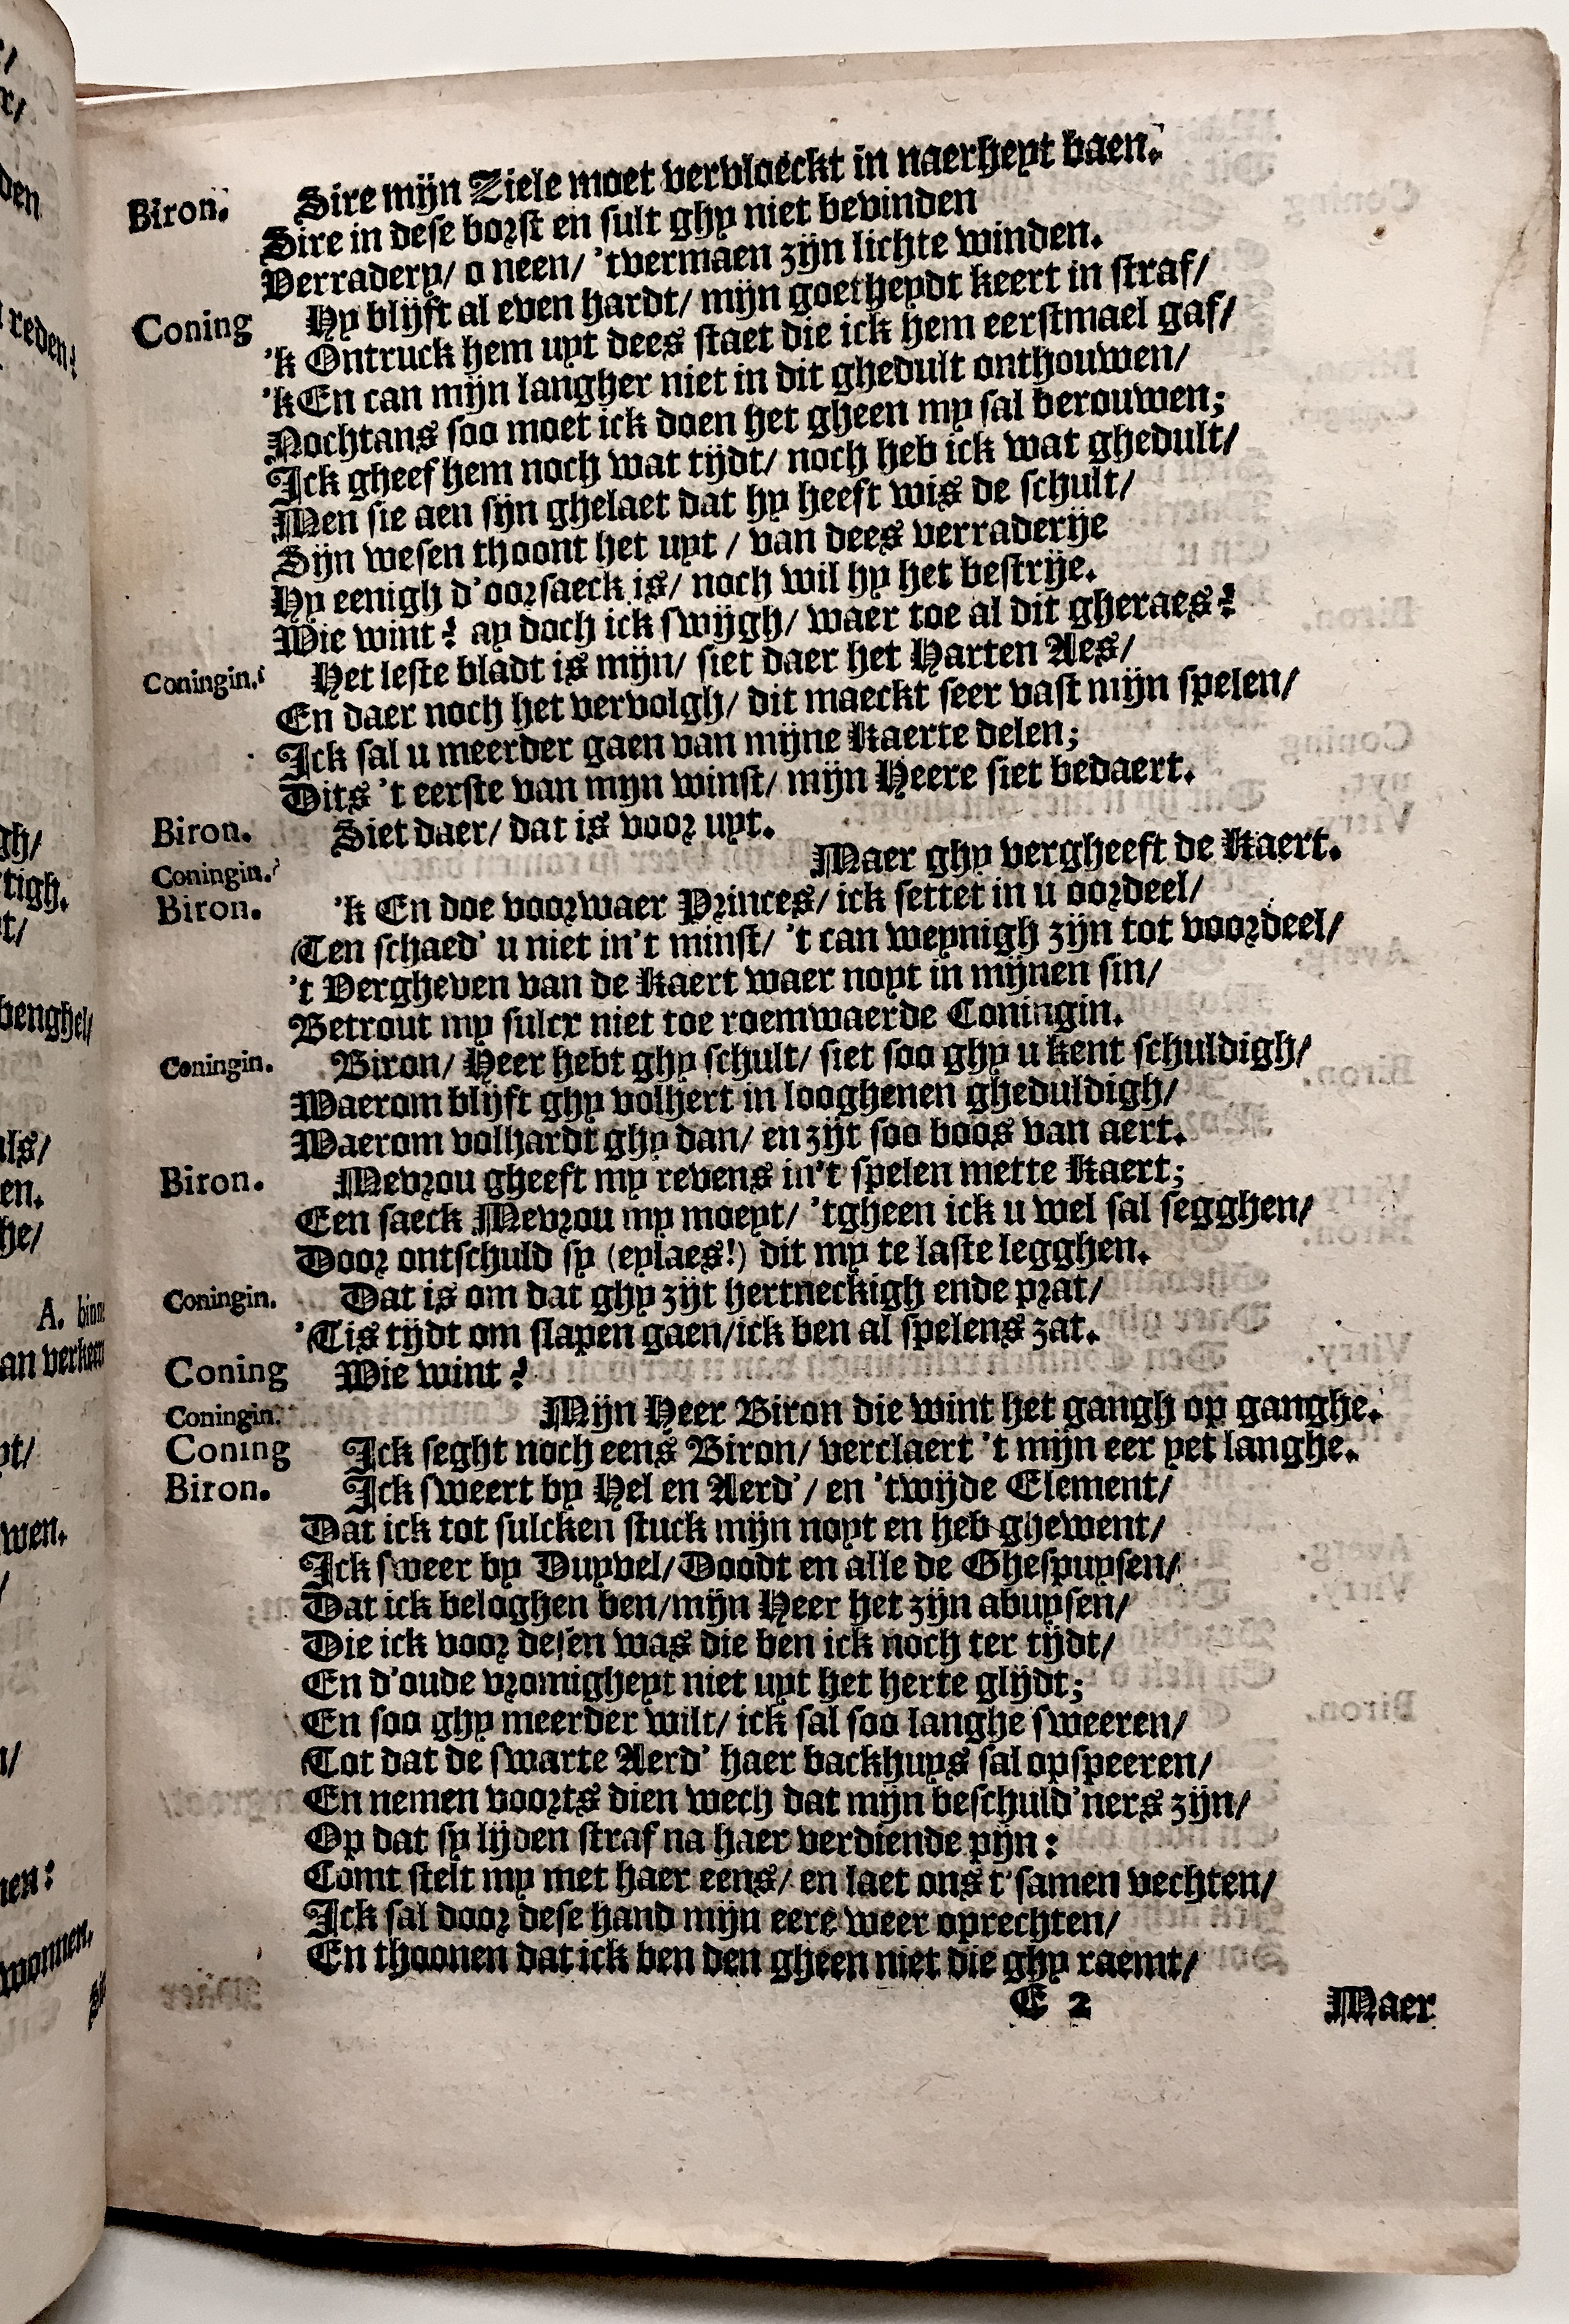 Sire mijn Ziele moet vervloeckt in naerheyt baen.
Biron. Sire in dese borst en sult ghy niet bevinden
Verradery/ o neen/ 'tvermaen zijn lichte winden.
Coning Hy blijft al even hardt/ mijn goetheydt keert in straf/
'k Ontruck hem uyt dees staet die ick hem eerstmael gaf/
'kEn can mijn langher niet in dit ghedult onthouwen/
Nochtans soo moet ick doen het gheen my sal berouwen;
Ick gheef hem noch wat tijdt/ noch heb ick wat ghedult/
Men sie aen sijn ghelaet dat hy heeft wis de schult/
Sijn wesen thoont het uyt / van dees verraderije
Hy eenigh d'oorsaeck is/ noch wil hy het bestrije.
Wie wint? ay doch ick swijgh/ waer toe al dit gheraes?
Coningin. Het leste bladt is mijn/ siet daer het Harten Aes/
En daer noch het vervolgh/ dit maeckt seer vast mijn spelen/
Ick sal u meerder gaen van mijne Kaerte delen;
Dits 't eerste van mijn winst/ mijn Heere siet bedaert.
Biron. Siet daer/ dat is voor uyt.
Coningin. Maer ghy vergheeft de Kaert.
Biron. 'k En doe voorwaer Princes/ ick settet in u oordeel/
Ten schaed' u niet in't minst/ 't can weynigh zijn tot voordeel/
't Vergheven van de Kaert waer noyt in mijnen sin/
Betrout my sulcx niet toe roemwaerde Coningin.
Coningin. Biron/ Heer hebt ghy schult/ siet soo ghy u kent schuldigh/
Waerom blijft ghy volhert in looghenen gheduldigh/
Waerom volhardt ghy dan/ en zijt soo boos van aert.
Biron. Mevrou gheeft my revens in't spelen mette Kaert;
Een saeck Mevrou my moeyt/ 'tgheen ick u wel sal segghen/
Door ontschuld sy (eylaes!) dit my te laste legghen.
Coningin. Dat is om dat ghy zijt hertneckigh ende prat/
'Tis tijdt om slapen gaen/ick ben al spelens zat.
Coning Wie wint?
Coningin. Mijn Heer Biron die wint het gangh op ganghe.
Coning Ick seght noch eens Biron/ verclaert 't mijn eer yet langhe.
Biron. Ick sweert by Hel en Aerd'/ en 'twijde Element/
Dat ick tot sulcken stuck mijn noyt en heb ghewent/
Ick sweer by Duyvel/Doodt en alle de Ghespuysen/
Dat ick beloghen ben/mijn Heer het zijn abuysen/
Die ick voor desen was die ben ick noch ter tijdt/
En d'oude vromigheyt niet uyt het herte glijdt;
En soo ghy meerder wilt/ ick sal soo langhe sweeren/
Tot dat de swarte Aerd' haer backhuys sal opspeeren/
En nemen voorts dien wech dat mijn beschuld'ners zijn/
Op dat sy lijden straf na haer verdiende pijn:
Comt stelt my met haer eens/ en laet ons t'samen vechten/
Ick sal door dese hand mijn eere weer oprechten/
En thoonen dat ick ben den gheen niet die ghy raemt/
E 2 Maer